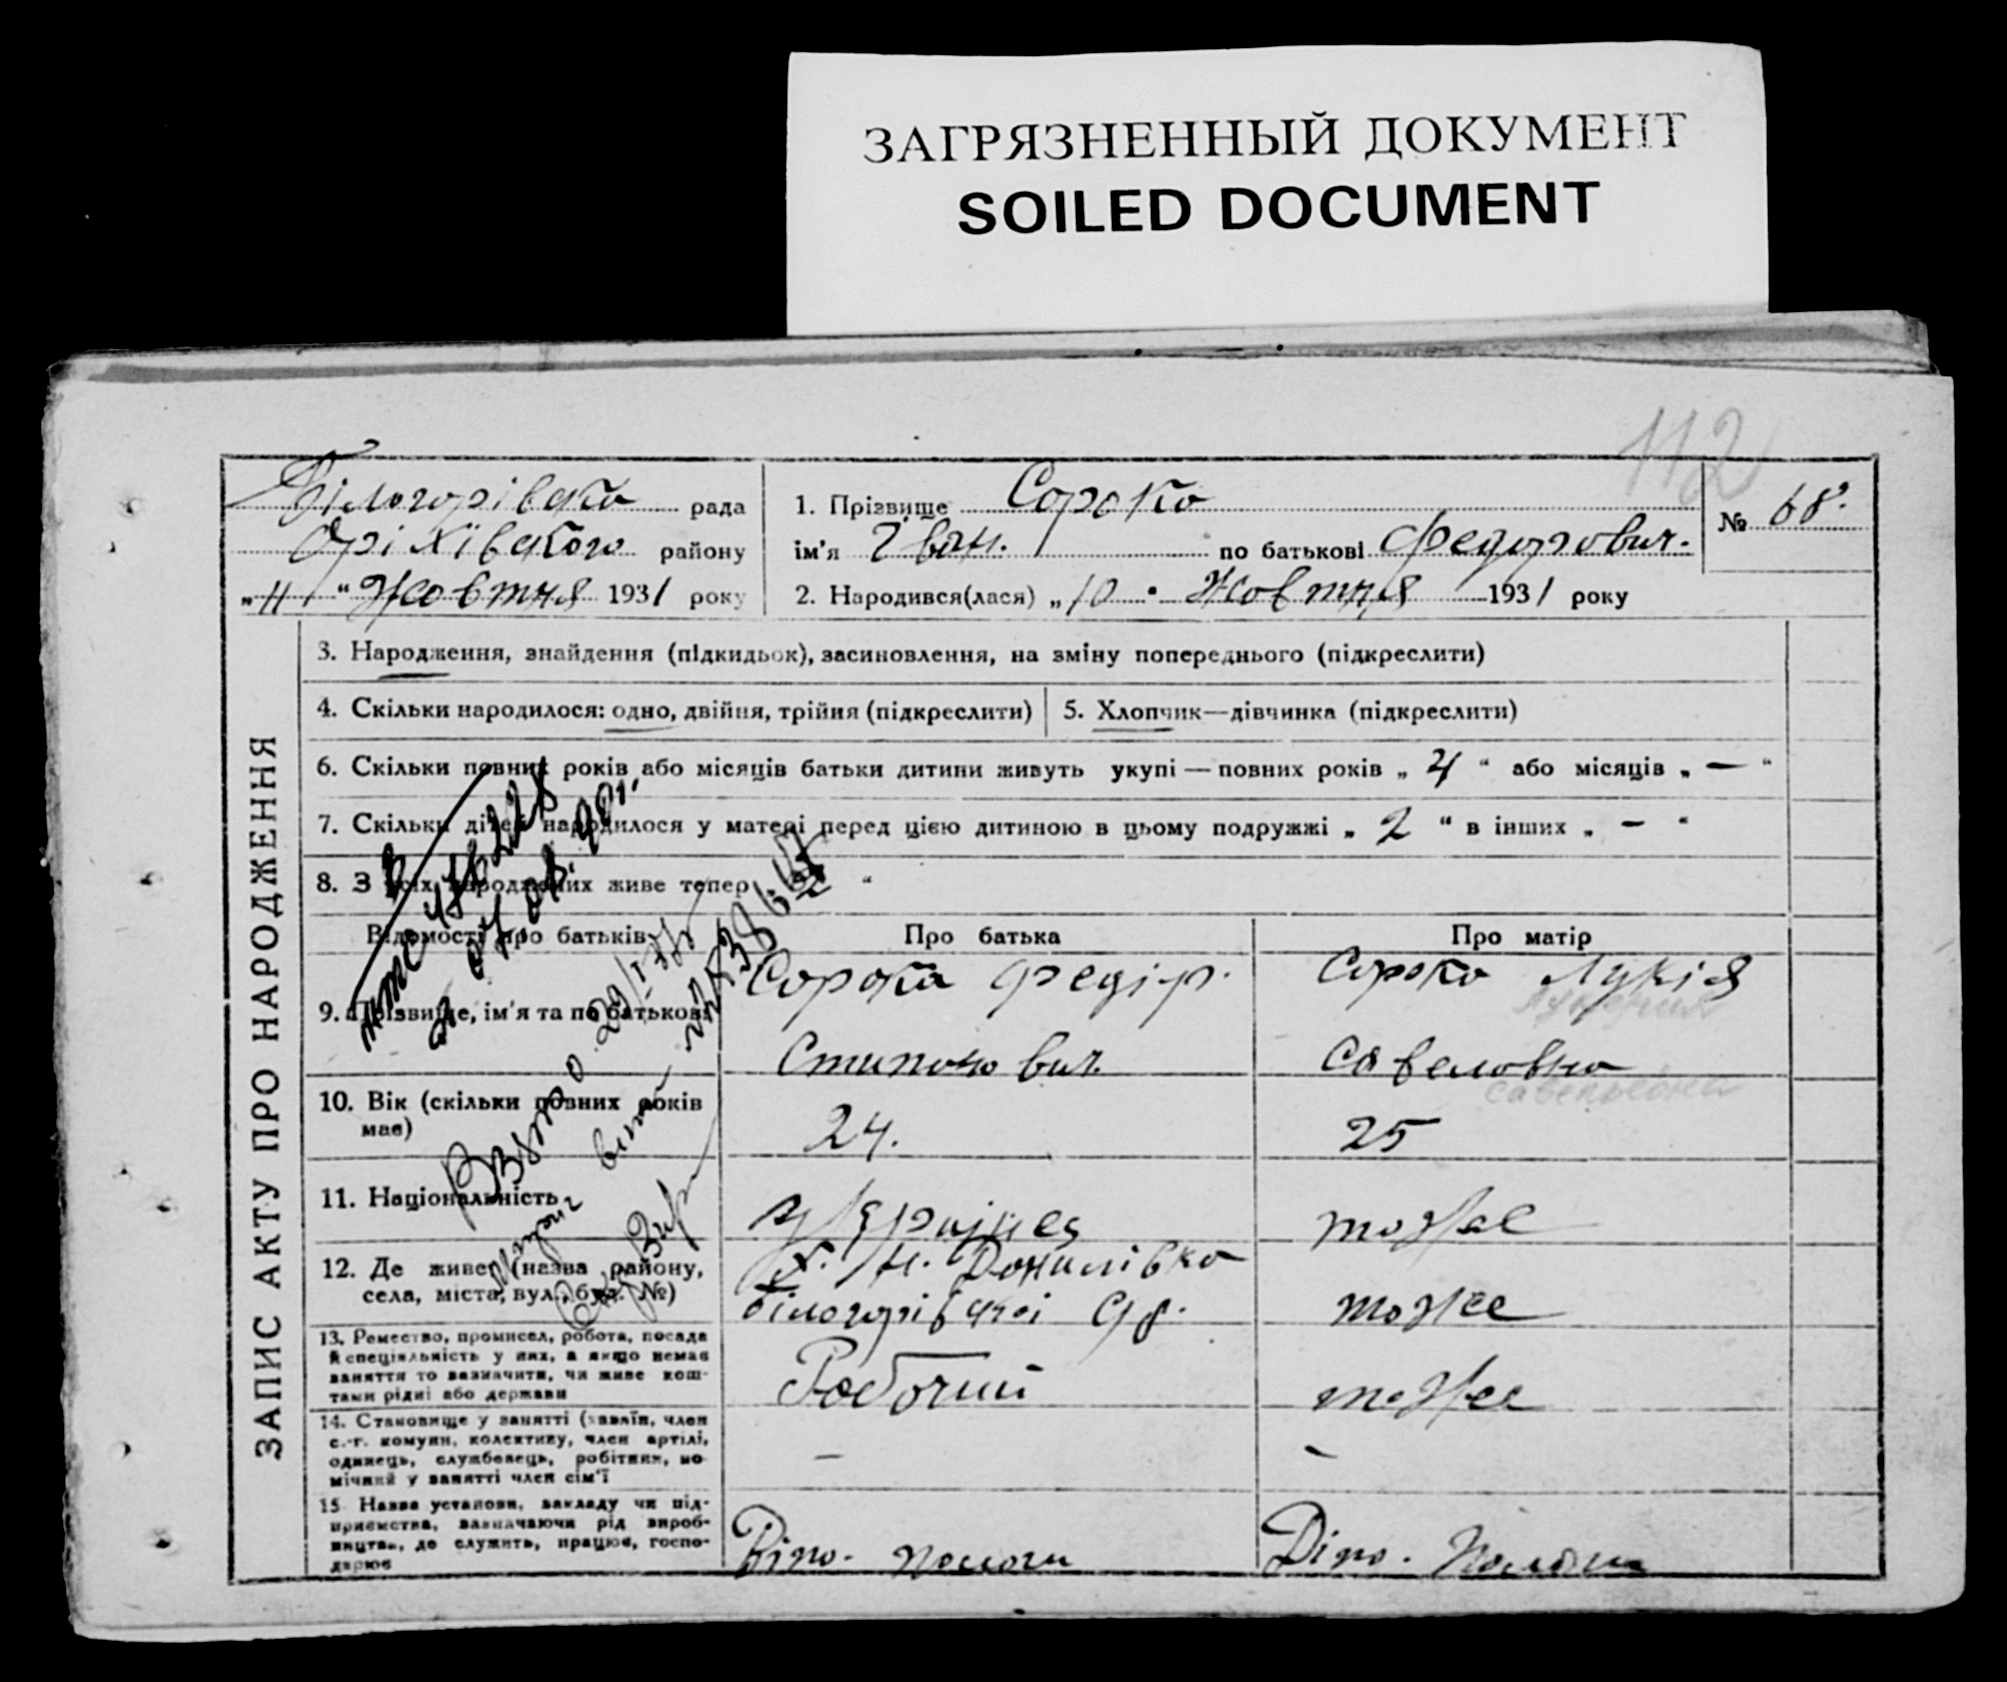 ЗАГРЯЗНЕННЫЙ ДОКУМЕНТ
SOILED DOCUMENT
112
Білогорівська рада
Оріхівського району
„11“ Жовтня 1931 року
1. Прізвище Сорока
ім'я Іван. по батькові Федорович.
2. Народився(лася) „10 Жовтня 1931 року
№ 68.
ЗАПИС АКТУ ПРО НАРОДЖЕННЯ
3. Народження, знайдення (підкидьок), засиновлення, на зміну попереднього (підкреслити)
4. Скільки народилося: одно, двійня, трійня (підкреслити)
5. Хлопчик—дівчинка (підкреслити)
6. Скільки повних років або місяців батьки дитини живуть укупі — повних років „ 4 “ або місяців „ — “
7. Скільки дітей народилося у матері перед цією дитиною в цьому подружжі „ 2 “ в інших „ - “
8. З усіх народжених живе тепер
Відомості про батьків
Про батька
Про матір
9. Прізвище, ім'я та по батькові
Сорока Федір.
Сорока Лукія
савельевна
10. Вік (скільки повних років має)
24.
25
11. Національність
Українец
тоже
12. Де живе (назва району, села, міста, вул., буд. №)
х. Н. Данилівка
Білогорівської с/р.
тоже
13. Ремество, промисел, робота, посада
й спеціяльність у них, а якщо немає
заняття то зазначити, чи живе кош-
тами рідні або держави
Робочий
тоже
14. Становище у занятті (хазяїн, член
с.-г. комуни, колективу, член артілі,
одинець, службовець, робітник, по-
мічний у занятті член сім'ї
–
–
15 Назва установи, закладу чи під-
приємства, зазначаючи рід вироб-
ництва, де служить, працює, госпо-
дарює